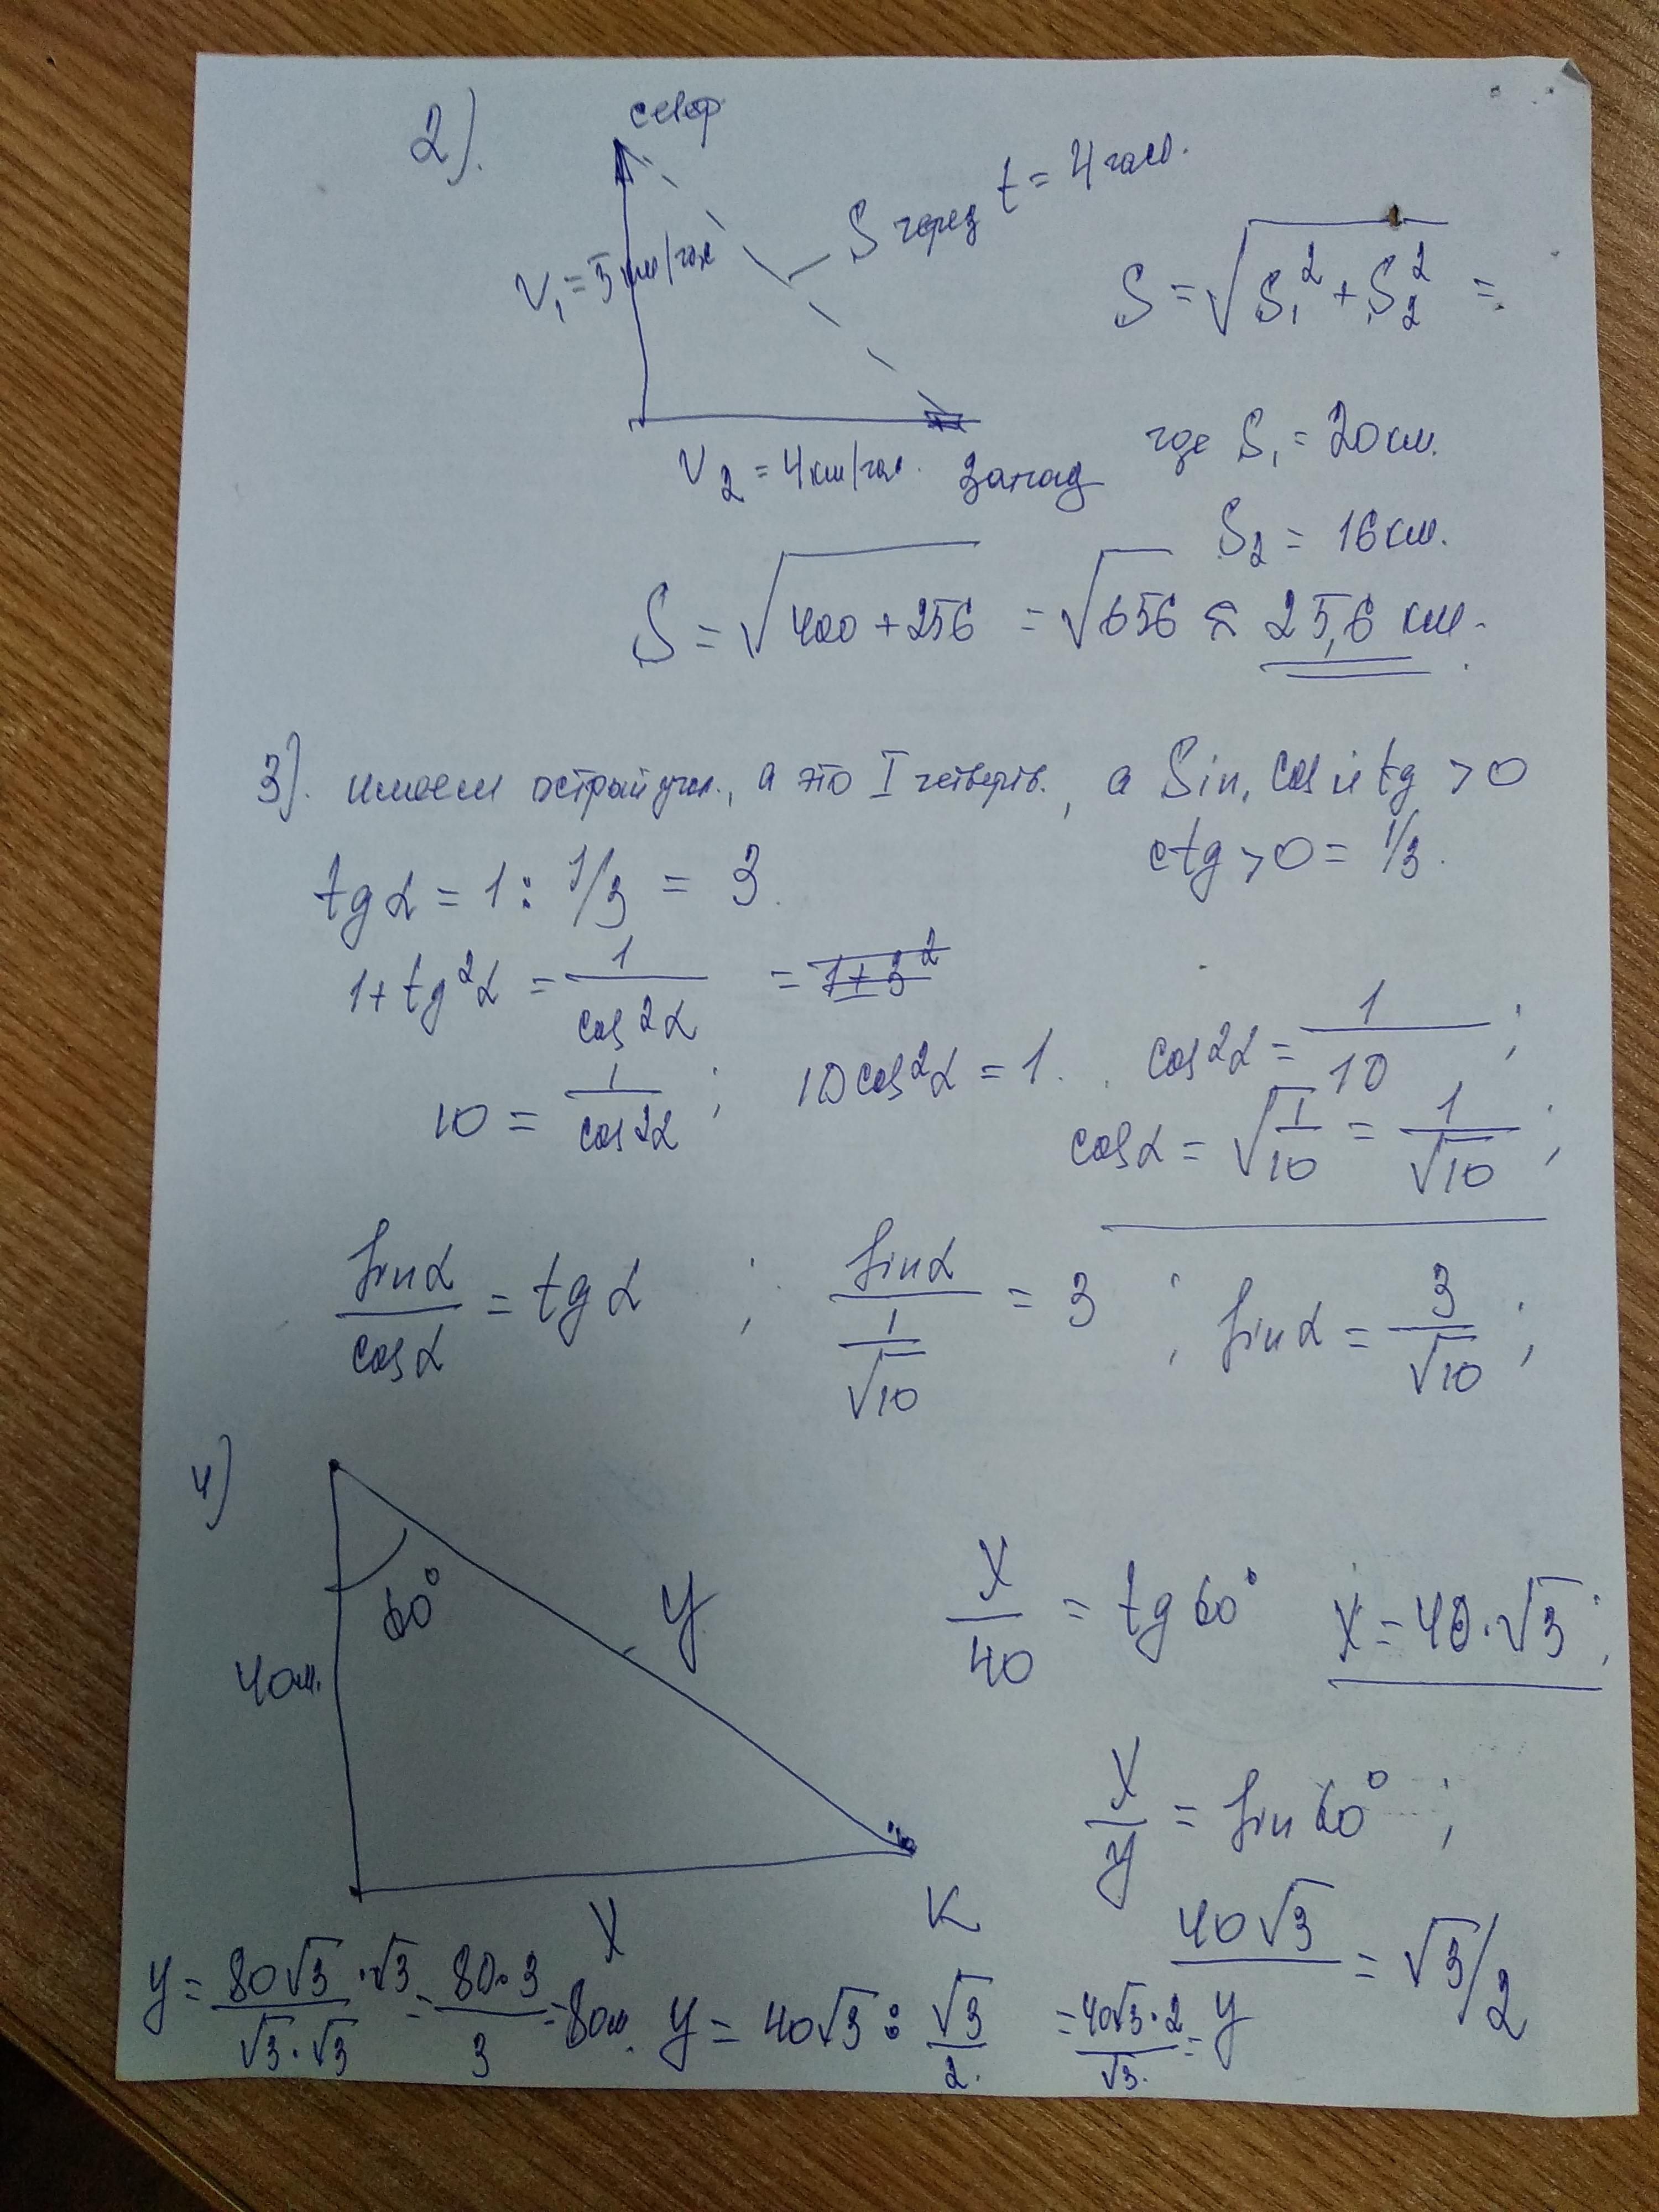 2).
север
S через t = 4 час.
V₁ = 5 км/час
S = √(S₁² + S₂²) =
V₂ = 4 км/час. запад
где S₁ = 20 км.
S₂ = 16 км.
S = √(400 + 256) = √656 ≈ 25,6 км.
3). имеем острый угл., а это I четверть., а Sin, cos и tg > 0
ctg > 0 = 1/3.
tg α = 1 : 1/3 = 3.
1 + tg²α = 1/cos²α = 1+3²
10 = 1/cos²α ; 10cos²α = 1. cos²α = 1/10 ;
cos α = √(1/10) = 1/√10 ;
sin α/cos α = tg α ; sin α/(1/√10) = 3 ; sin α = 3/√10 ;
4)
60°
y
40м.
x/40 = tg 60° x = 40·√3 ;
x/y = sin 60° ;
x
K
40√3/y = √3/2
y = 40√3 : √3/2 = 40√3·2/√3 =
y = 80√3·√3/√3·√3 = 80·3/3 = 80м.